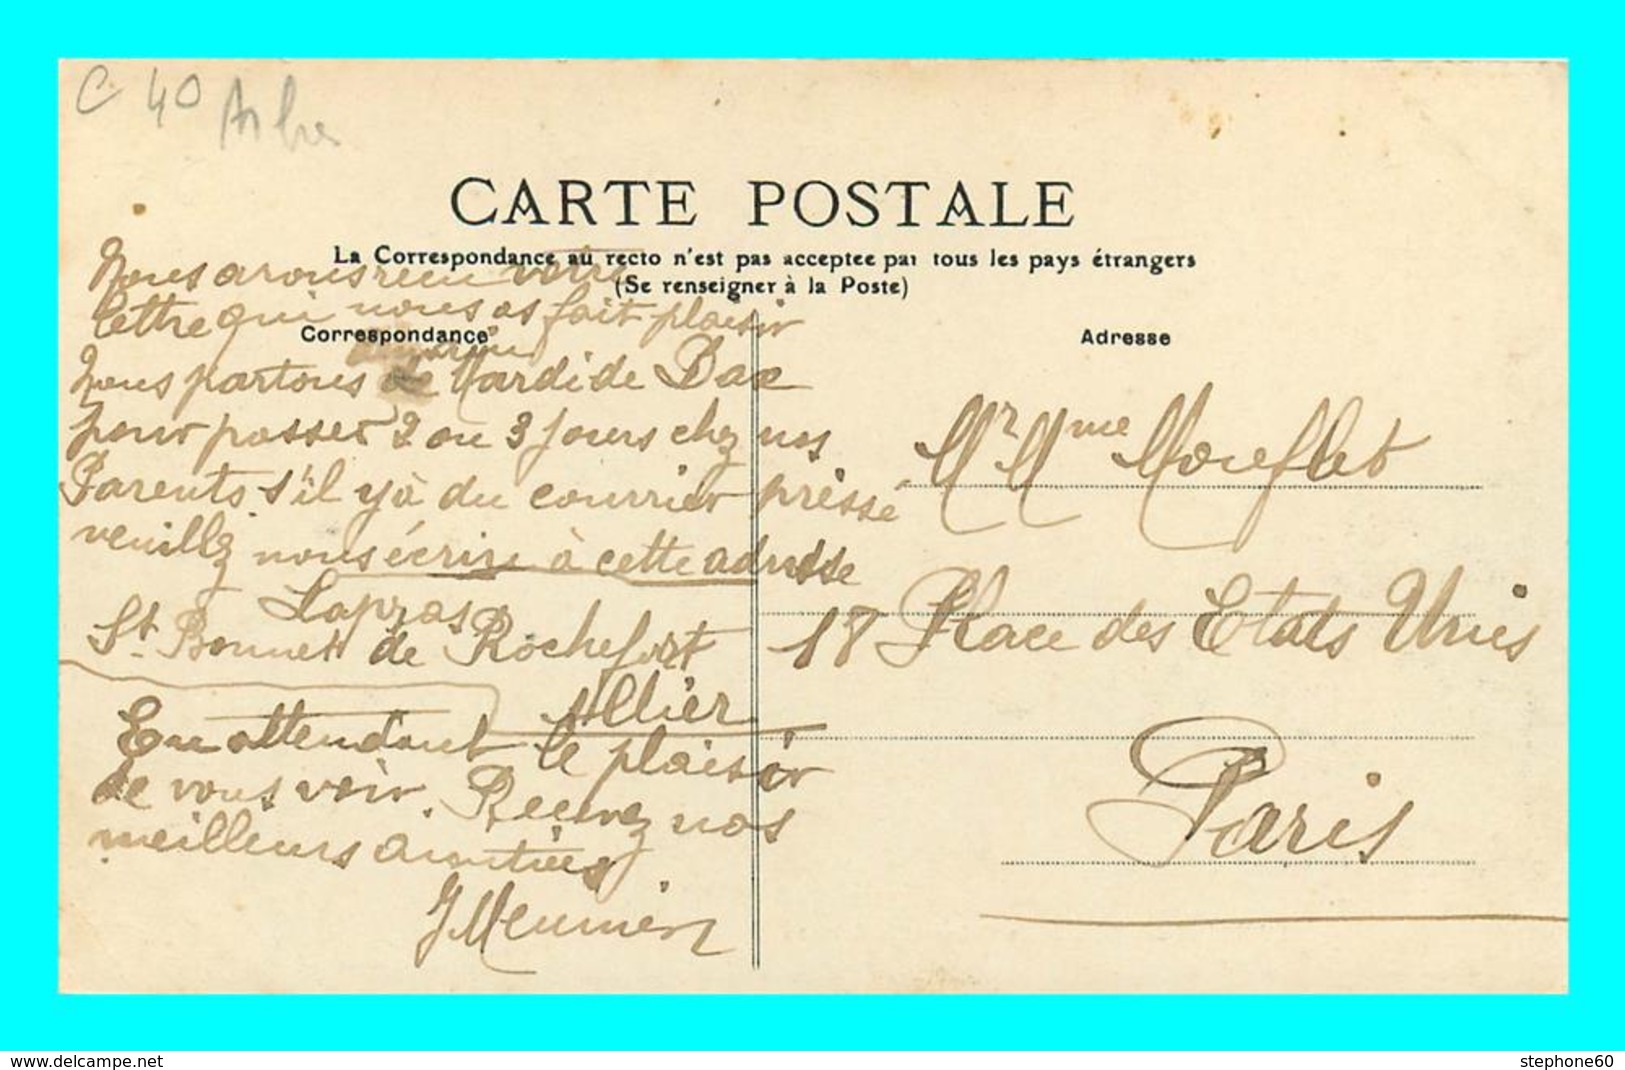 C 40
CARTE POSTALE
La Correspondance au recto n'est pas acceptée par tous les pays étrangers
(Se renseigner à la Poste)
Correspondance
Nous avons recu votre
lettre qui nous as fait plaisir
Nous partons Mardi de Dax
pour passer 2 ou 3 jours chez nos
Parents s'il y à du courrier pressé
veuillez nous écrire à cette adresse
Lapras
St Bonnet de Rochefort
Allier
En attendant le plaisir
de vous voir. Recevez nos
meilleurs amitiées
J Meunier
Adresse
Mr Mme Mouflet
18 Place des Etats Unis
Paris
www.delcampe.net
stephone60